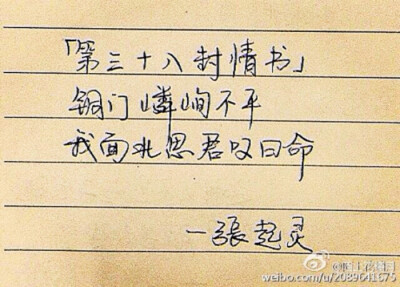 「第三十八封情书」
铜门嶙峋不平
我面北思君叹曰命
—張起灵
weibo.com/u/2089641675